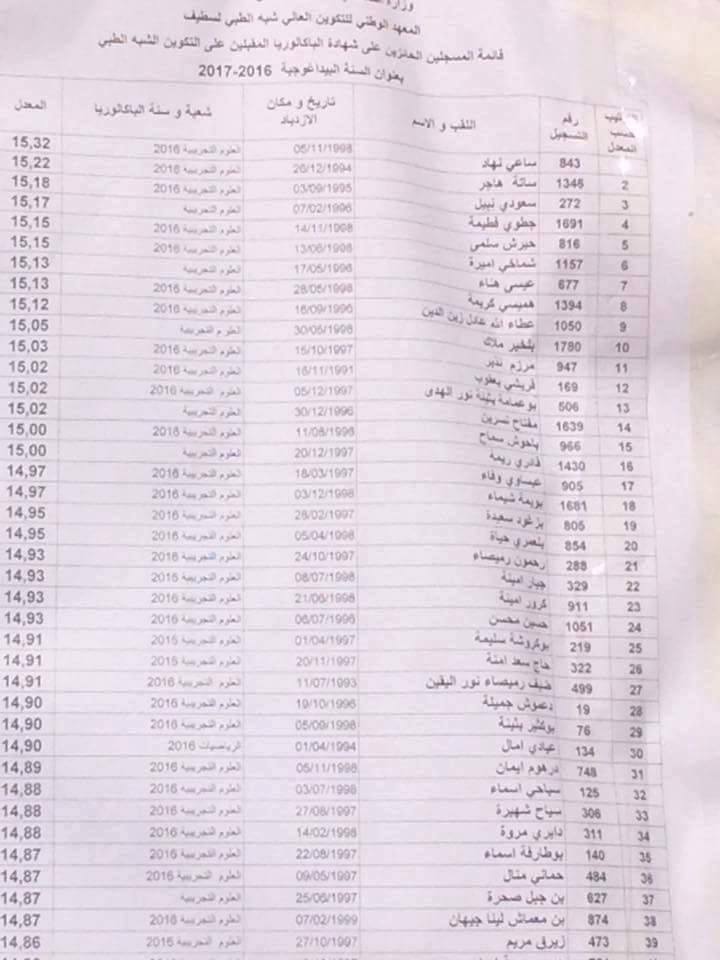 المعهد الوطني للتكوين العالي شبه الطبي لسطيف
قائمة المسجلين الحائزين على شهادة الباكالوريا المقبلين على التكوين الشبه الطبي
بعنوان السنة البيداغوجية 2016-2017
حسب المعدل رقم التسجيل اللقب و الاسم تاريخ و مكان الازدياد شعبة و سنة الباكالوريا المعدل
843 ساعي نهاد 05/11/1998 العلوم التجريبية 2016 15,32
2 1346 ساتة هاجر 26/12/1994 العلوم التجريبية 2016 15,22
3 272 سعودي نبيل 03/09/1995 العلوم التجريبية 2016 15,18
4 1691 جطوي فطيمة 07/02/1996 العلوم التجريبية 15,17
5 816 حيرش سلمى 14/11/1998 العلوم التجريبية 2016 15,15
6 1157 شماخي اميرة 13/06/1998 العلوم التجريبية 2016 15,15
7 677 عيسى هناء 17/05/1996 العلوم التجريبية 15,13
8 1394 هميسي كريمة 28/05/1998 العلوم التجريبية 2016 15,13
9 1050 عطاء الله عادل زين الدين 16/09/1996 العلوم التجريبية 2016 15,12
10 1780 بلخير ملاك 30/05/1998 العلوم التجريبية 15,05
11 947 مرزم نذير 15/10/1997 العلوم التجريبية 2016 15,03
12 169 قريشي يعقوب 16/11/1991 العلوم التجريبية 2016 15,02
13 506 بوعمامة بثينة نور الهدى 05/12/1997 العلوم التجريبية 2016 15,02
14 1639 مفتاح نسرين 30/12/1996 العلوم التجريبية 15,02
15 966 ياحوش سماح 11/08/1996 العلوم التجريبية 2016 15,00
16 1430 قادري ريمة 20/12/1997 العلوم التجريبية 15,00
17 905 عيساوي وفاء 18/03/1997 العلوم التجريبية 2016 14,97
18 1681 بويمة شيماء 03/12/1998 العلوم التجريبية 2016 14,97
19 805 بزغود سعيدة 28/02/1997 العلوم التجريبية 2016 14,95
20 854 بلعمري حياة 05/04/1998 العلوم التجريبية 2016 14,95
21 288 رحمون رميصاء 24/10/1997 العلوم التجريبية 2016 14,93
22 329 جبار امينة 08/07/1998 العلوم التجريبية 2016 14,93
23 911 كرور امينة 21/06/1998 العلوم التجريبية 2016 14,93
24 1051 حسين محسن 06/07/1998 العلوم التجريبية 2016 14,93
25 219 بوكروشة سليمة 01/04/1997 العلوم التجريبية 2015 14,91
26 322 حاج سعد امنة 20/11/1997 العلوم التجريبية 2015 14,91
27 499 ضيف رميصاء نور اليقين 11/07/1993 العلوم التجريبية 2016 14,91
28 19 دعموش جميلة 19/10/1996 العلوم التجريبية 2016 14,90
29 76 بوكثير بثينة 05/09/1998 العلوم التجريبية 2016 14,90
30 134 عيادي امال 01/04/1994 الرياضيات 2016 14,90
31 748 درهوم ايمان 05/11/1998 العلوم التجريبية 2016 14,89
32 125 سياحي اسماء 03/07/1998 العلوم التجريبية 2016 14,88
33 306 سياح شهيرة 27/08/1997 العلوم التجريبية 2016 14,88
34 311 دايري مروة 14/02/1998 العلوم التجريبية 2016 14,88
35 140 بوطارفة اسماء 22/08/1997 العلوم التجريبية 2016 14,87
36 484 حماني منال 09/05/1997 العلوم التجريبية 2016 14,87
37 627 بن جبل صحرة 25/06/1997 العلوم التجريبية 14,87
38 874 بن معماش لينا جيهان 07/02/1999 العلوم التجريبية 2016 14,87
39 473 زيرق مريم 27/10/1997 العلوم التجريبية 2016 14,86